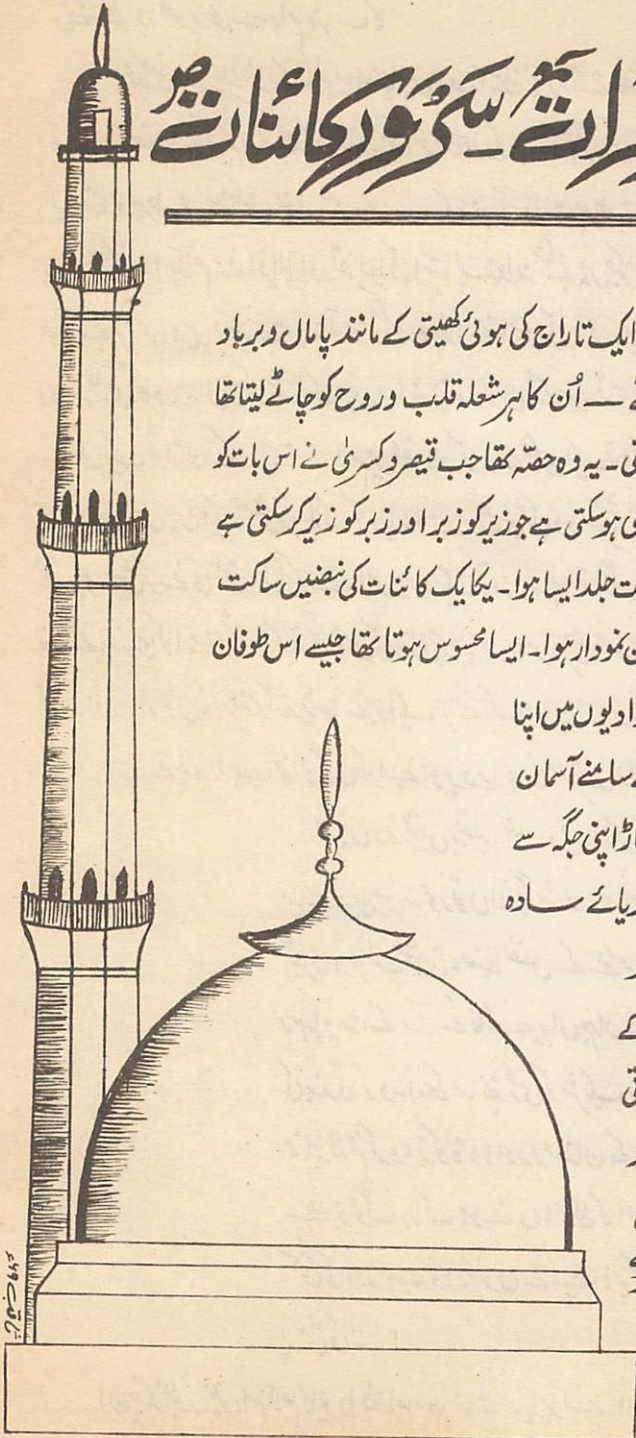 سرورِ کائنات
ایک تاراج کی ہوئی کھیتی کے مانند پامال و برباد
— اُن کا ہر شعلہ قلب و روح کو چاٹے لیتا تھا
یہ وہ حصّہ تھا جب قیصر و کسریٰ نے اس بات کو
ہوسکتی ہے جو زیر کو زبر اور زبر کو زیر کر سکتی ہے
جلد ایسا ہوا۔ یکایک کائنات کی نبضیں ساکت
نمودار ہوا۔ ایسا محسوس ہوتا تھا جیسے اس طوفان
میں اپنا
سامنے آسمان
اپنی جگہ سے
سادہ
کے
ثاقب ۶۹ء